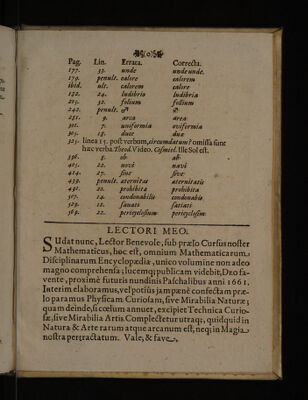 Pag. Lin. Errata. Correcta.
177. 33. unde undeunde.
179. penult. calere calerem
ibid. ult. calerem calere
192. 24. ludibria ludibria
203. 32. folium folium
240. penult. ♂
251. 9. area area
301. 7. uniformia oviformia
303. 18. duce dua
325. linea 15. post verbum, circumdatum? omissa sunt
hæc verba. Theod. Video. Cosmiel. Ille Sol est.
336. 3. ob ab
405. 22. novi navi
424. 27. sine sive
439. penult. æternitas æternitatis
492. 20. prohibita prohibita
507. 14. condonabilis conabilis
529. 12. sanati satiati
569. 22. pericyclosum pericyclosim
LECTORI MEO.
SUdat nunc, Lector Benevole, sub prælo Cursus noster
Mathematicus, hoc est, omnium Mathematicarum
Disciplinarum Encyclopædia, unico volumine non adeo
magno comprehensa; lucemq; publicam videbit, Deo fa-
vente, proximè futuris nundinis Paschalibus anni 1661.
Interim elaboramus, vel potiùs jam pæne confectam præ-
lo paramus Physicam Curiosam, sive Mirabilia Naturæ;
quam deinde, si cœlum annuet, excipiet Technica Curio-
sa, sive Mirabilia Artis. Complectetur utraq;, quidquid in
Natura & Arte rarum atque arcanum est, neq; in Magia
nostra pertractatum. Vale, & fave.